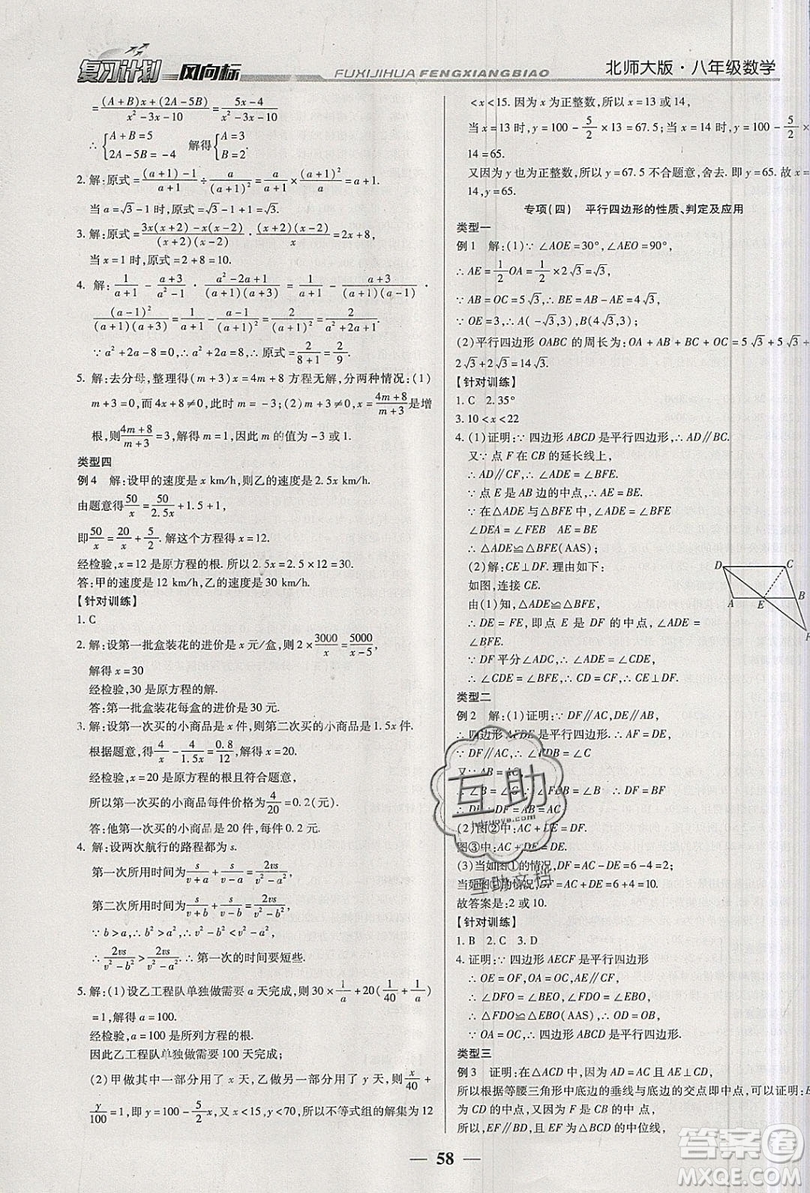 复习计划 风向标
FUXIJIHUA FENGXIANGBIAO
北师大版·八年级数学
=((A+B)x+(2A-5B))/(x²-3x-10)=(5x-4)/(x²-3x-10)
∴{A+B=5 2A-5B=-4 解得{A=3 B=2
2. 解:原式=((a+1)-1)/(a+1)÷a/(a+1)²=a/(a+1)·(a+1)²/a=a+1.
当 a=√3-1时,原式=√3-1+1=√3.
3. 解:原式=(3x(x+2)-x(x-2))/((x-2)(x+2))·(x+2)(x-2)/x=2x+8.
当 x=1 时,原式=2+8=10.
4. 解:1/(a+1)-(a+3)/(a²-1)·(a²-2a+1)/((a+1)(a+3))=1/(a+1)-(a+3)/((a+1)(a-1))·
(a-1)²/((a+1)(a+3))=1/(a+1)-(a-1)/(a+1)²=2/(a+1)²
∵a²+2a-8=0,∴a²+2a=8,∴原式=2/(8+1)=2/9.
5. 解:去分母,整理得(m+3)x=4m+8 方程无解,分两种情况:(1)
m+3=0,而 4m+8≠0,此时 m=-3;(2)x=(4m+8)/(m+3)是增
根,则(4m+8)/(m+3)=3,解得 m=1. 因此 m 的值为-3 或 1.
类型四
例4 解:设甲的速度是 x km/h,则乙的速度是 2.5x km/h.
由题意得50/x=50/2.5x+1.5+1,
即50/x=20/x+5/2. 解这个方程得 x=12.
经检验,x=12 是原方程的根.所以 2.5x=2.5×12=30.
答:甲的速度是 12 km/h,乙的速度是 30 km/h.
【针对训练】
1. C
2. 解:设第一批盒装花的进价是 x 元/盒,则 2×3000/x=5000/(x-5),
解得 x=30
经检验,30 是原方程的解.
答:第一批盒装花每盒的进价是 30 元.
3. 解:设第一次买的小商品是 x 件,则第二次买的小商品是 1.5x 件.
根据题意,得4/x-4/1.5x=0.8/12,解得 x=20.
经检验,x=20 是原方程的根且符合题意.
所以第一次买的小商品每件价格为4/20=0.2(元),
答:他第一次买的小商品是 20 件,每件 0.2 元.
4. 解:设两次航行的路程都为 s.
第一次所用时间为s/v+s/v=2s/v=2vs/v²
第二次所用时间为s/(v+b)+s/(v-b)=2vs/(v²-b²)
∵b>a,∴b²>a²,∴v²-b²<v²-a²
∴2vs/(v²-b²)>2vs/(v²-a²).∴第一次的时间要短些.
5. 解:(1)设乙工程队单独做需要 a 天完成,则 30×1/a+20(1/40+1/a)
=1,解得 a=100.
经检验 a=100 是所列方程的根.
因此乙工程队单独做需要 100 天完成;
(2)甲做其中一部分用了 x 天,乙做另一部分用了 y 天,则x/40+
y/100=1,即 y=100-5/2x,又 x<15,y<70,所以不等式组的解集为 12
<x<15. 因为 x 为正整数,所以 x=13 或 14,
当 x=13 时,y=100-5/2×13=67.5;当 x=14 时,y=100-5/2×
14=65.
又因为 y 也为正整数,所以 y=67.5 不合题意,舍去. 即 y=65. 故 x=
14,y=65.
专项(四) 平行四边形的性质、判定及应用
类型一
例1 解:(1)∵∠AOE=30°,∠AEO=90°,
∴AE=1/2OA=1/2×2√3=√3.
∵AB=OC=5√3,∴BE=6√3.
∵OE=3,∴A(-√3,3),B(5√3,3);
(2)平行四边形 OABC 的周长为:OA+AB+BC+OC=5√3+5√3+
2√3+2√3=14√3.
【针对训练】
1. C 2. 35°
3. 10<x<22
4. (1)证明:∵四边形 ABCD 是平行四边形,∴AD∥BC.
又∵点 F 在 CB 的延长线上,
∴AD∥CF,∴∠ADE=∠BFE.
∵点 E 是 AB 边的中点,∴AE=BE.
在△ADE 与△BFE 中,∵∠ADE=∠BFE,
∠AED=∠FEB AE=BE,
∴△ADE≌△BFE(AAS);
(2)解:CE⊥DF. 理由如下:
如图,连接 CE.
由(1)知,△ADE≌△BFE,
∴DE=FE,即点 E 是 DF 的中点,∠ADE=∠BFE.
∵DF 平分∠ADC,∴∠ADE=∠CDE,∴∠CDE=∠BFE,
∴CD=CF,∴CE⊥DF.
D C
A E B
F
类型二
例2 解:(1)证明:∵DF∥AC,DE∥AB,
∴四边形 AFDE 是平行四边形.∴AF=DE,
∵DF∥AC,∴∠FDB=∠C
又∵AB=AC,∴∠B=∠C,
∴∠FDB=∠B,∴DF=BF
∴DE+DF=AB=AC;
(2)图②中:AC+DE=DF.
图③中:AC+DF=DE.
(3)当如图①的情况,DF=AC-DE=6-4=2;
当如图②的情况,DF=AC+DE=6+4=10.
故答案是:2 或 10.
【针对训练】
1. B 2. C 3. D
4. 证明:∵四边形 AECF 是平行四边形
∴OE=OF,OA=OC,AE∥CF,
∴∠DFO=∠BEO,∠FDO=∠EBO,
∴△FDO≌△EBO,∴OD=OB,
∵OA=OC,∴四边形 ABCD 是平行四边形
类型三
例3 证明:在△ACD 中,∵AD=AC,AE⊥CD,
所以根据等腰三角形中底边的垂线与底边的交点即中点,可以得出 E
为 CD 的中点,又因为 F 是 CB 的中点,
所以,EF∥BD,且 EF 为△BCD 的中位线,
58
互助
互助文档
答案圈
MXQE.COM